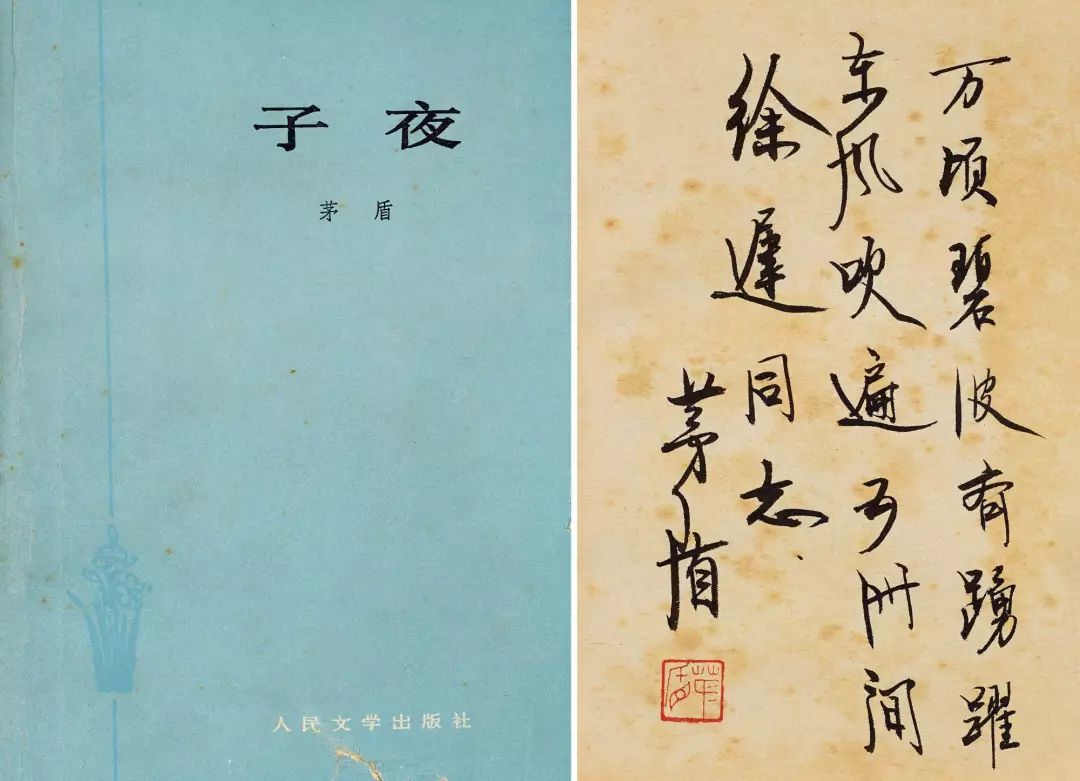 子夜
茅盾
人民文学出版社
万顷碧波齐踴躍
东风吹遍五洲间
徐遲同志
茅盾
茅盾